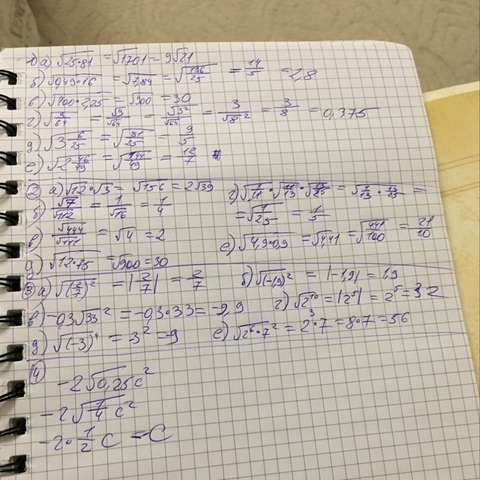 1) а) √25·81 = √1701 = 9√21
б) √0,49·16 = √7,84 = √196/25 = 14/5 = 2,8
в) √400·2,25 = √900 = 30
г) √9/64 = √9/√64 = √3²/√64 = 3/√8² = 3/8 = 0,375
д) √3 6/25 = √81/25 = 9/5
е) √2 46/49 = √144/49 = 12/7
2) а) √12·√3 = √156 = 2√39
б) √7/√112 = 1/√16 = 1/4
в) √444/√111 = √4 = 2
д) √12·75 = √900 = 30
= √1/25 = 1/5
е) √4,9·0,9 = √4,41 = √441/100 = 21/10
3) а) √(2/7)² = |2/7| = 2/7
б) √(-1,9)² = |-1,9| = 1,9
в) -0,3√33² = -0,3·33 = -9,9
г) √2¹⁰ = |2⁵| = 2⁵ = 32
д) √(-3)⁴ = 3² = 9
е) √2⁶·7² = 2³·7 = 8·7 = 56
4)
-2√0,25c²
-2√1/4 c²
-2·1/2 c = -c